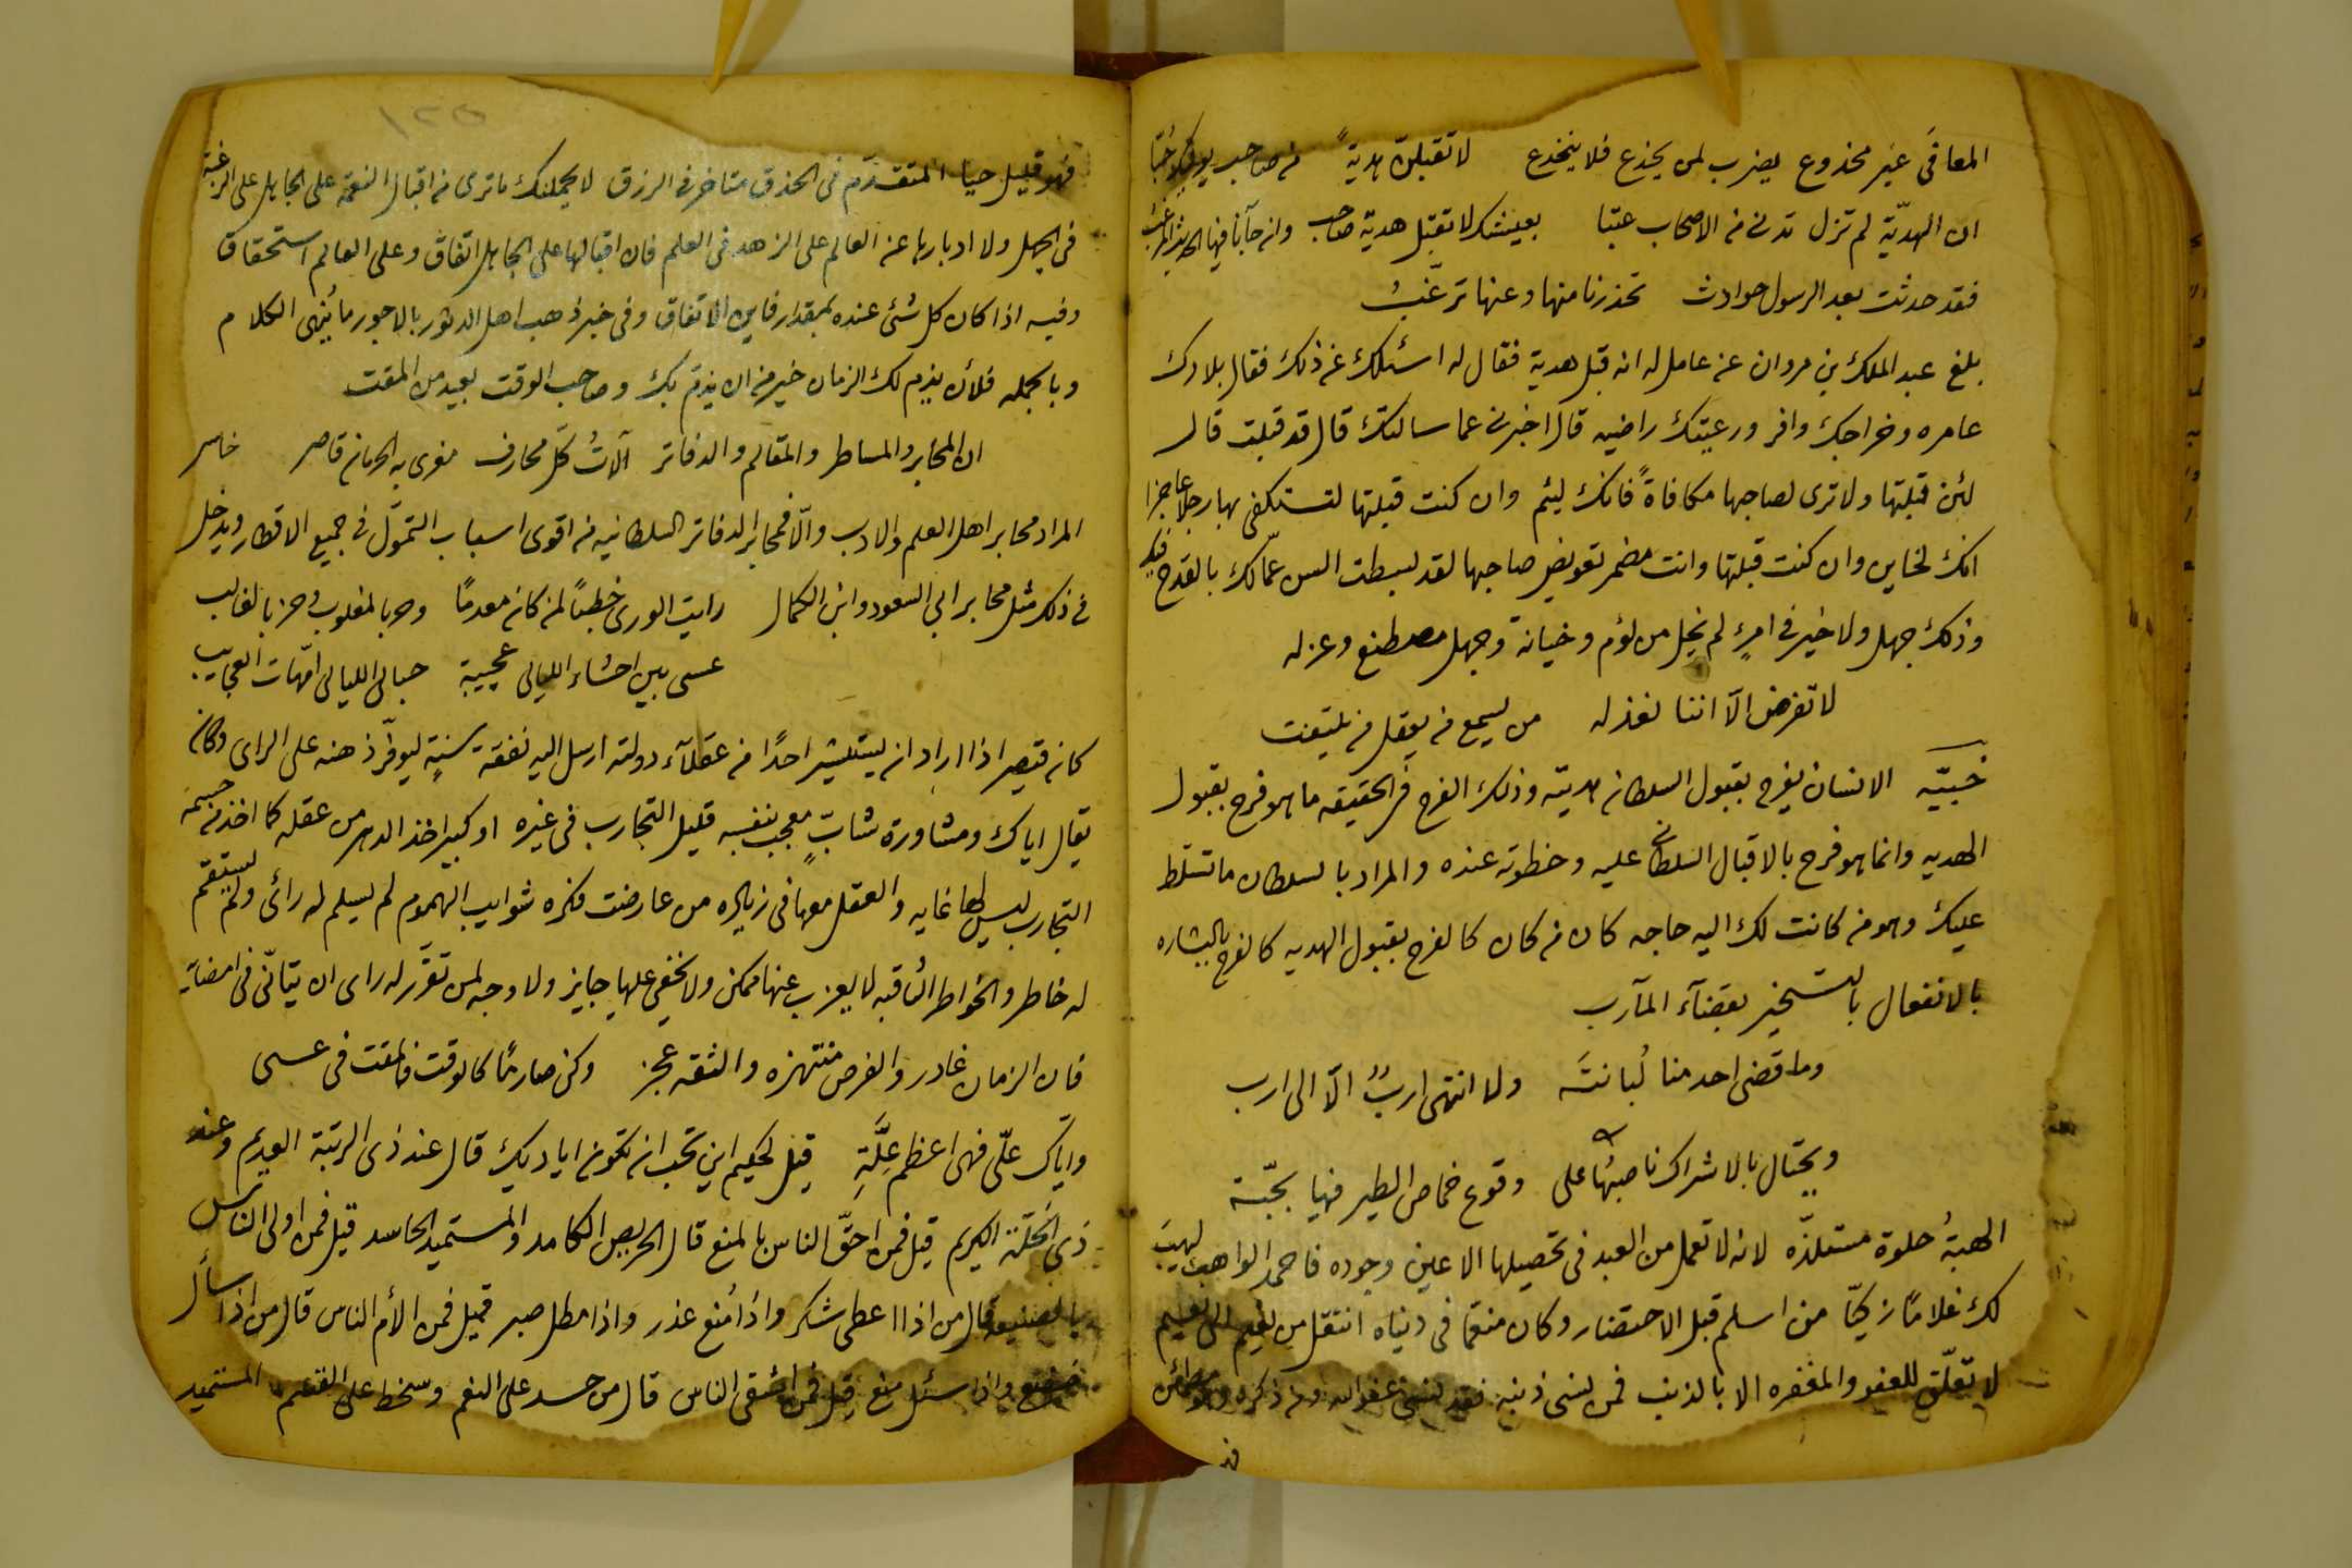 المعافى غير مخدوع يضرب لمن يخدع فلا ينخدع لا تقبلن هدية من صاحب
ان الهدية لم تزل تدنى من الاصحاب عتبا بعيشك لا تقبل هدية صاحب وان جاآنا فيها الحديث
فقد حدثت بعد الرسول حوادث تحذرنا منها وعنها ترغب
بلغ عبد الملك بن مروان عن عامل له انه قبل هدية فقال له اسئلك عن ذلك فقال بلادك
عامره وخراجك وافر ورعيتك راضيه قال اخبرنى عما سالتك قال قد قبلت قال
لئن قبلتها ولا ترى لصاحبها مكافاةً فانك لئيم وان كنت قبلتها لتستكفى بها رجلا عاجزا
انك لخاين وان كنت قبلتها وانت مضمر تعويض صاحبها لقد بسطت السن عمّالك بالقدح فيك
وذلك جهل ولا خير فى امرءٍ لم يخل من لؤم وخيانة وجهل مصطنع وعزله
لا تفرض الّا اننا نعذله من يسمع من يعقل من يلتفت
الانسان يفرح بقبول السلطان هديته وذلك الفرح فى الحقيقه ما هو فرح بقبول
الهديه وانما هو فرح بالاقبال السلطانى عليه وحظوته عنده والمراد بالسلطان ما تسلط
عليك وهو من كانت لك اليه حاجه كان من كان كالفرح بقبول الهديه كالفرح بالبشاره
بالانفعال بالتسخير بقضآء المآرب
وما قضى احد منا لُبانتَه ولا انتهى اربٌ الّا الى ارب
ويحتال بالاشراك ناصبُها على وقوع خماص الطير فيها بحبّة
الهبةُ حلوة مستلذّه لانه لا تعمل من العبد فى تحصيلها الا عين وجوده فاحمد الواهب ليهبَ
لك غلامًا زكيّا من اسلم قبل الاحتضار وكان منعّما فى دنياه انتقل من نعيم الى نعيم
لا تعلّق للعفو والمغفره الا بالذنب فمن نسى ذنبه فقد نسى عفو الله ومن ذكره
١٢٥
فهو قليل حيا المتقدّم فى الحذق متاخر فى الرزق لا يحملنك ما ترى من اقبال النعمة على الجاهل على الرغبة
فى الجهل ولا ادبارها عن العالم على الزهد فى العلم فان اقبالها على الجاهل اتفاق وعلى العالم استحقاق
وفيه اذا كان كل شئ عنده بمقدار فاين الاتفاق وفى خبر ذهب اهل الدثور بالاجور ما يُنهى الكلام
وبالجمله فلأن يذم لك الزمان خير من ان يذمّ بك وصاحب الوقت بعيد من المقت
ان المحابر والمساطر والمقالم والدفاتر آلاتُ كلّ محارف مغرى به الحرمان قاصر خاسر
المراد محابر اهل العلم والادب والّا فمحابر الدفاتر السلطانيه من اقوى اسباب التموّل فى جميع الاقطار ويدخل
فى ذلك مثل محابر ابى السعود وابن الكمال رايت الورى خطبًا لمن كان معدمًا وحربا لمغلوب وحزبا لغالب
عسى بين احشاء الليالى عجيبة حبالى الليالى امّهات العجايب
كان قيصر اذا اراد ان يستشير احدًا من عقلآء دولته ارسل اليه نفقة سنةٍ ليوفّر ذهنه على الراى وكان
يقال اياك ومشاورة شابٍّ معجب بنفسه قليل التجارب فى غيره او كبير اخذ الدهر من عقله كما اخذ من جسمه
التجارب ليس لها غايه والعقل معها فى زياده من عارضت فكره شوايب الهموم لم يسلم له رائى ولم يستقم
له خاطر والخواطر الثاقبه لا يعزب عنها ممكن ولا يخفى عليها جايز ولا وجه لمن تقرّر له راى ان يتانّى فى امضائه
فان الزمان غادر والفرص منتهزه والثقه عجز وكن صارمًا كالوقت فالمقت فى عسى
واياك علّى فهى اعظم عِلَّةِ قيل لحكيم اين تحب ان تكون اياديك قال عند ذى الرتبة القديم وعند
ذى الخَلّة الكريم قيل فمن احقّ الناس بالمنع قال الحريص الكامد والمستميد الحاسد قيل فمن اولى الناس
بالصنيعه قال من اذا اعطى شكر واذا مُنع عذر واذا مطل صبر قيل فمن الأم الناس قال من اذا سأل
خضع واذا سئل منع قيل فمن اشقى الناس قال من حسد على النعم وسخط على القسم المستميد